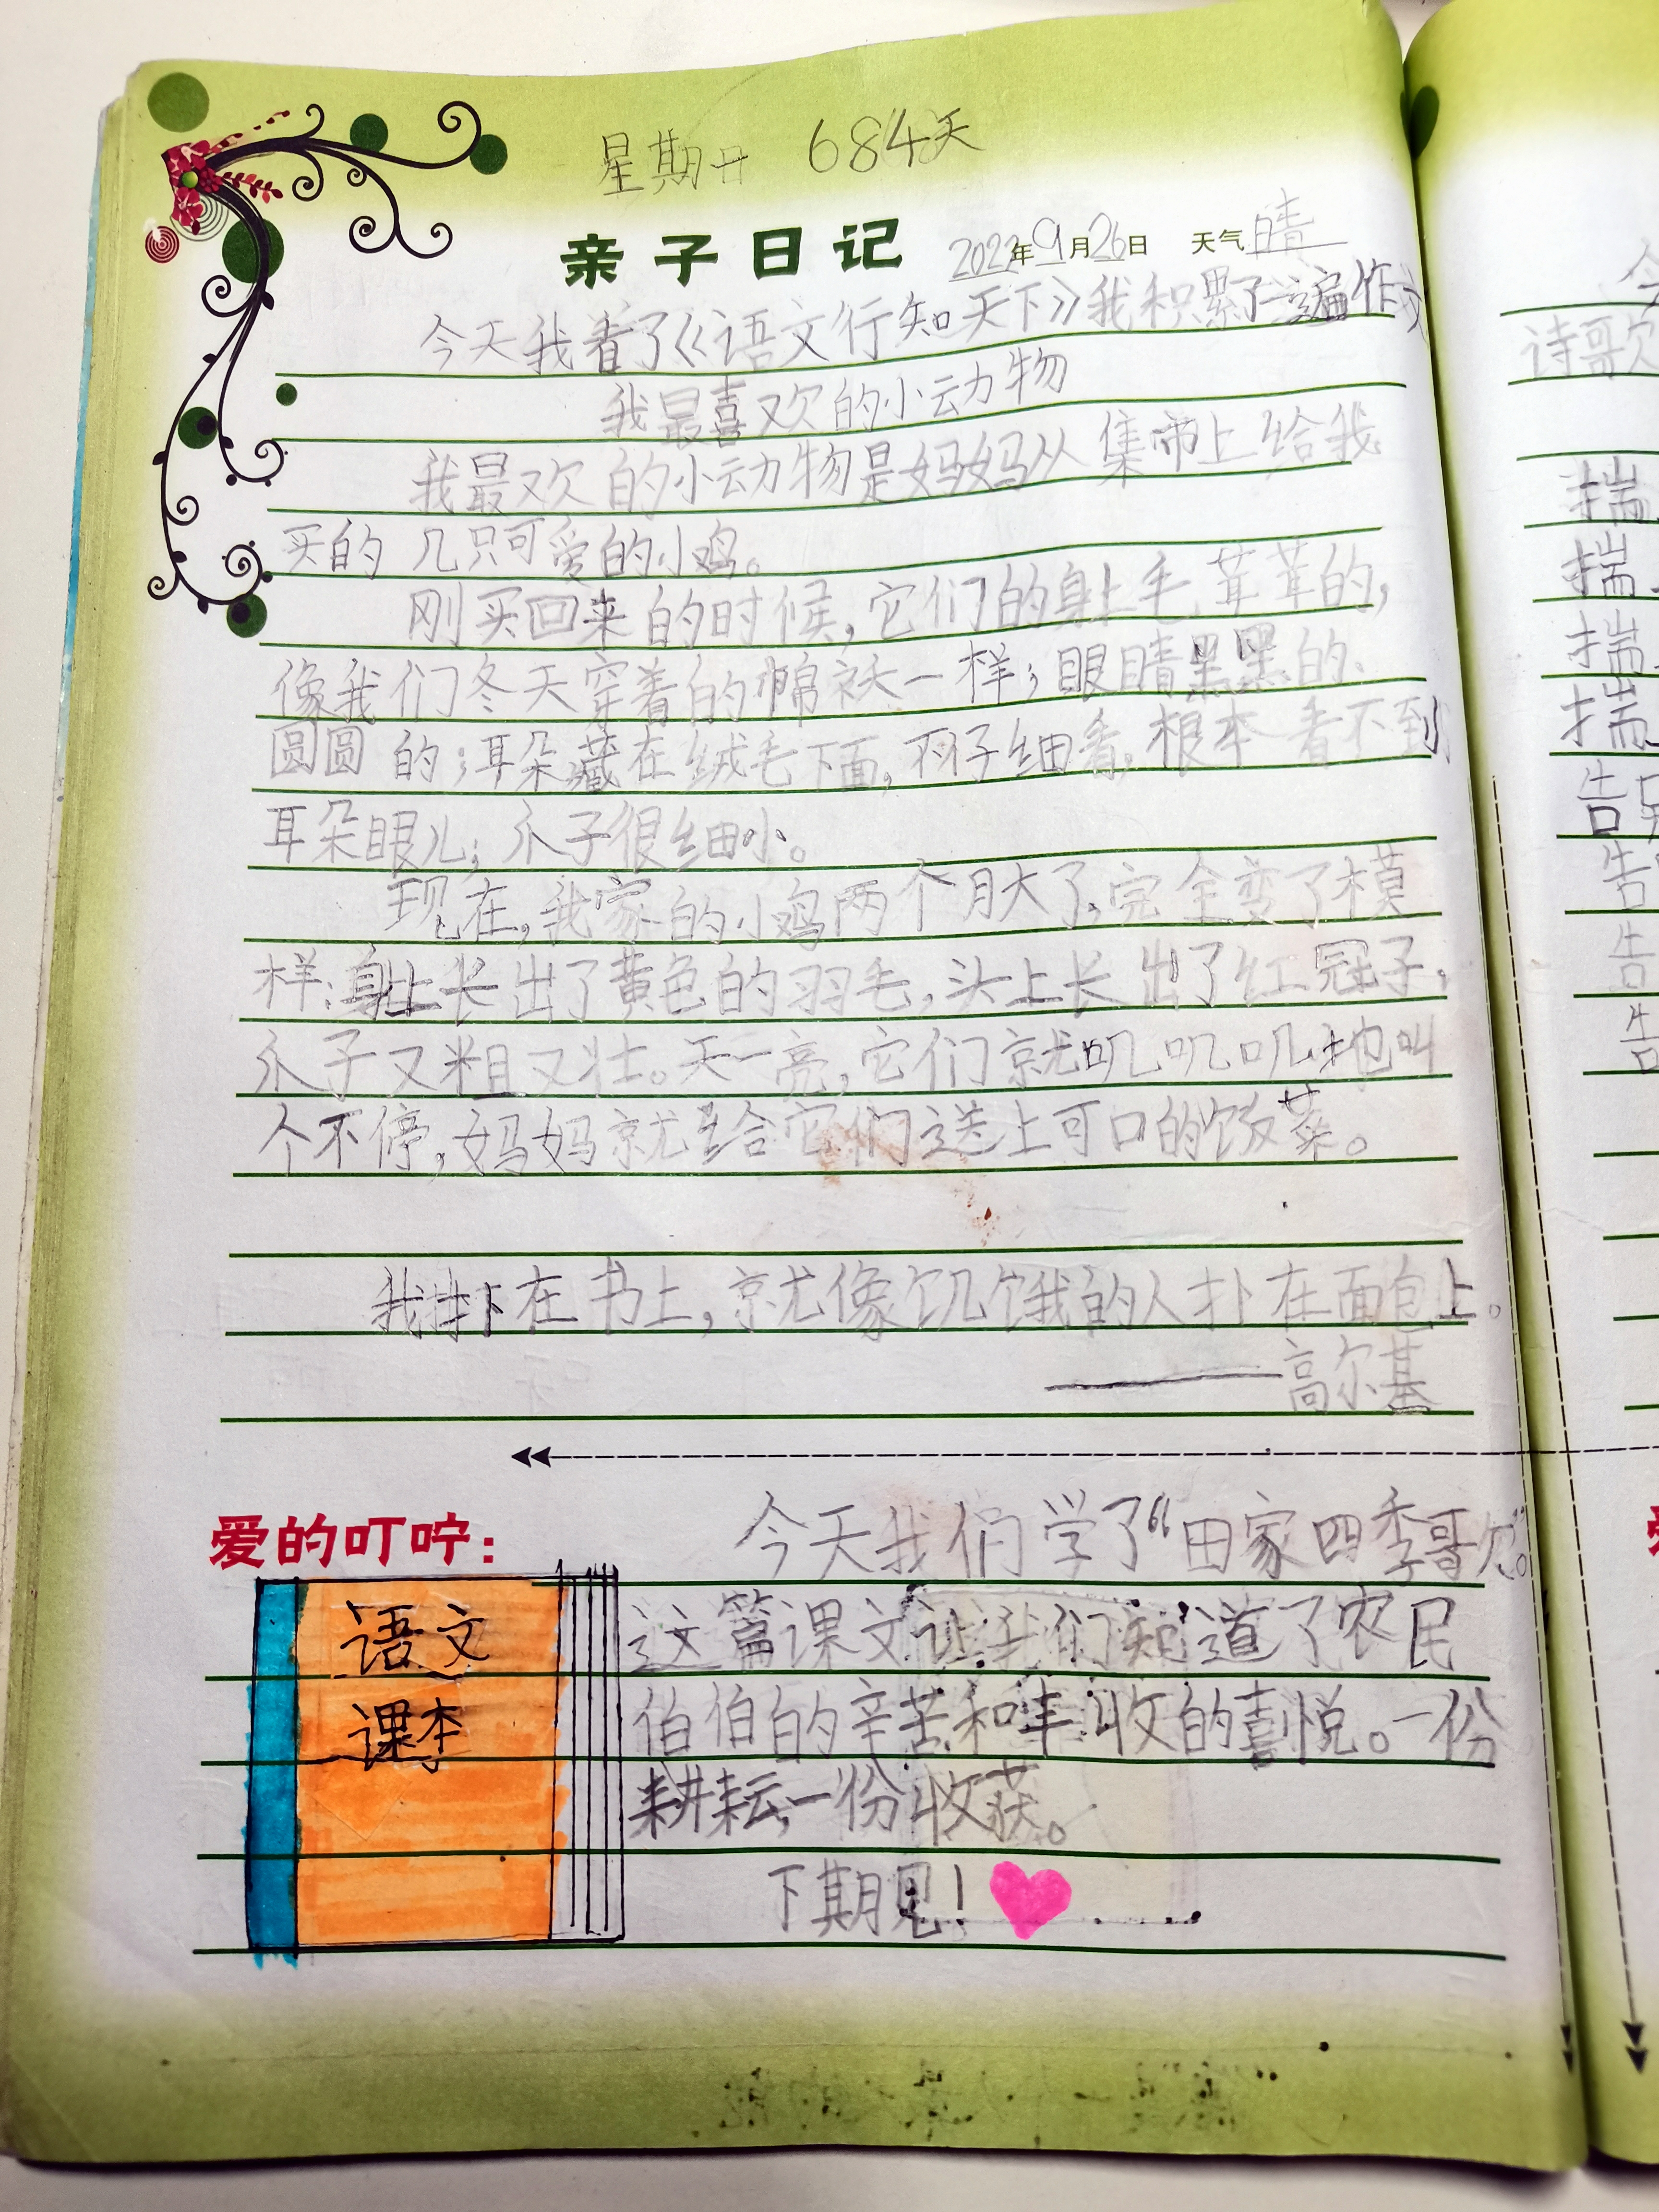 星期一 684天
亲子日记 2022年9月26日 天气晴
今天我看了《语文行知天下》我积累了一遍作文
我最喜欢的小动物
我最欢的小动物是妈妈从集市上给我
买的几只可爱的小鸡。
刚买回来的时候,它们的身上毛茸茸的,
像我们冬天穿着的棉袄一样;眼睛黑黑的.
圆圆的;耳朵藏在绒毛下面,不仔细看,根本看不到
耳朵眼儿;爪子很细小。
现在,我家的小鸡两个月大了,完全变了模
样:身上长出了黄色的羽毛,头上长出了红冠子,
爪子又粗又壮。天一亮,它们就叽叽叽地叫
个不停,妈妈就给它们送上可口的饭菜。
我扑在书上,就像饥饿的人扑在面包上。
——高尔基
爱的叮咛:
今天我们学了“田家四季歌”。
这篇课文让我们知道了农民
伯伯的辛苦和丰收的喜悦。一份
耕耘,一份收获。
下期见!
语文
课本
诗歌
揣
揣
揣
揣
告
告
告
告